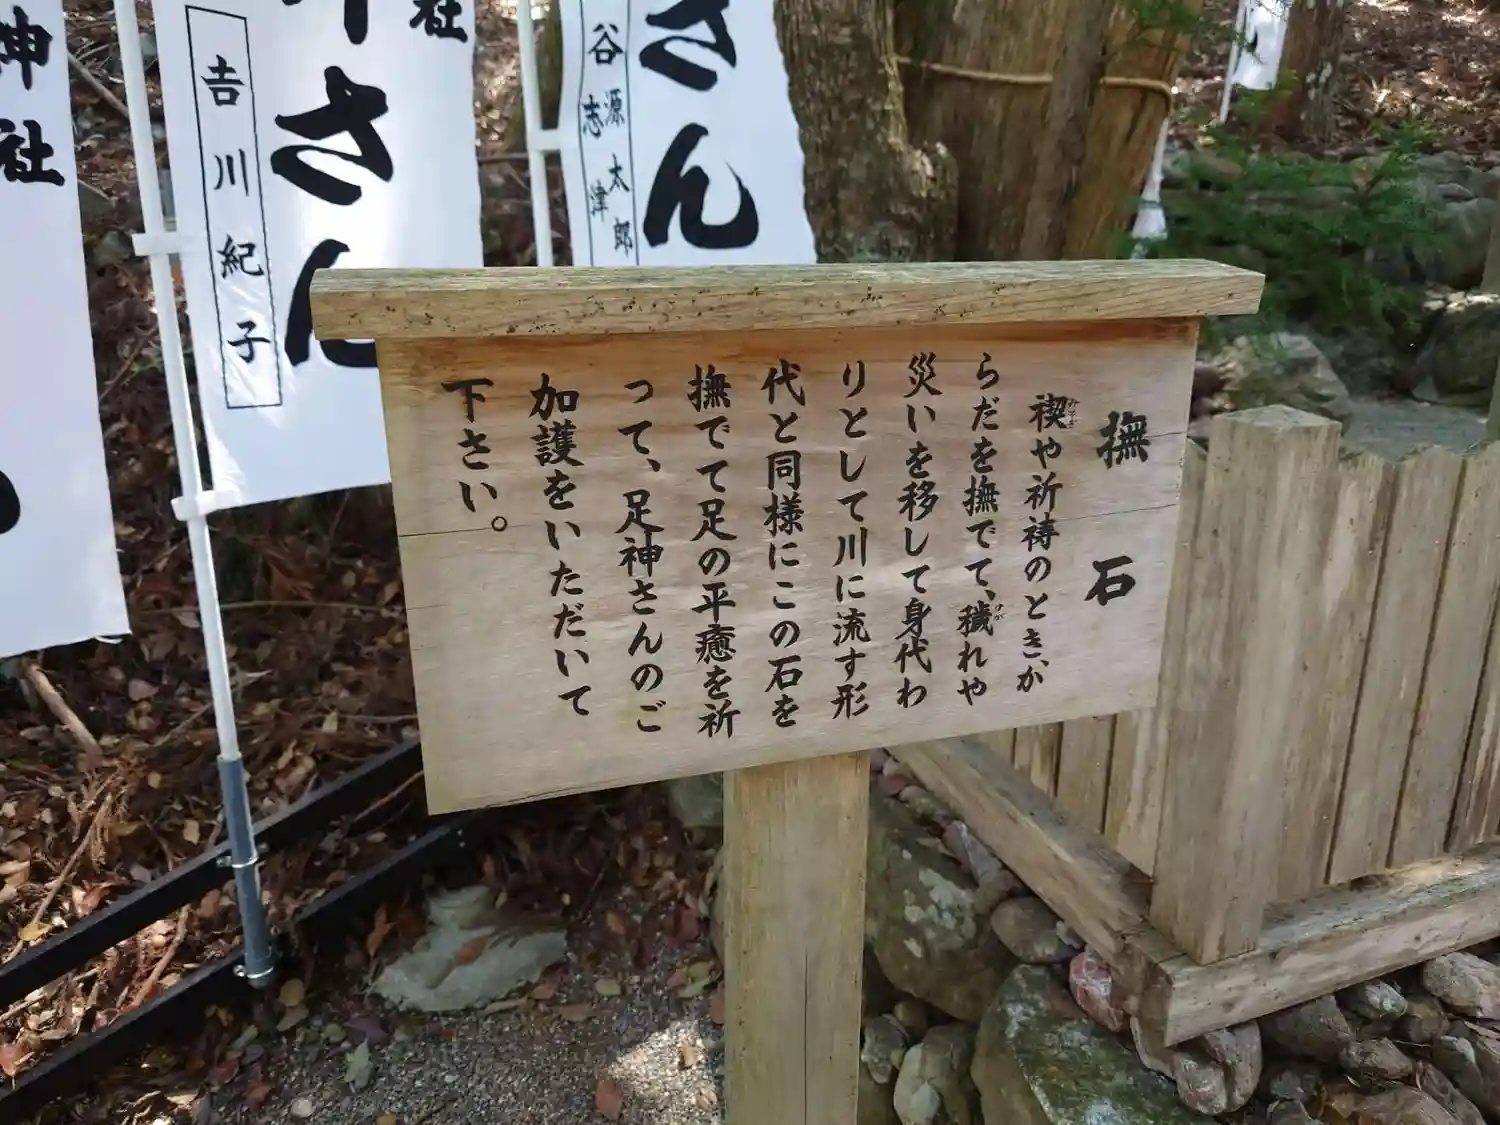 撫石
禊や祈祷のとき、か
みそぎ
らだを撫でて、穢れや
けが
災いを移して身代わ
りとして川に流す形
代と同様にこの石を
撫でて足の平癒を祈
って、足神さんのご
加護をいただいて
下さい。
さん
谷源太郎
志津
社
さん
𠮷川紀子
神社